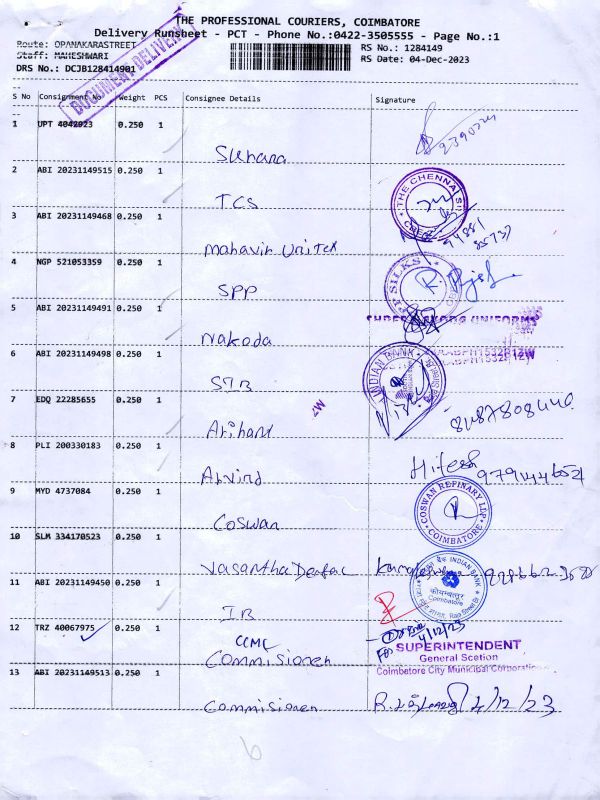 THE PROFESSIONAL COURIERS, COIMBATORE
Delivery Runsheet - PCT - Phone No.:0422-3505555 - Page No.:1
Route: OPANAKARASTREET RS No.: 1284149
Staff: MAHESHWARI RS Date: 04-Dec-2023
DRS No.: DCJB128414901
DOCUMENT DELIVERY
S No Consignment No Weight PCS Consignee Details Signature
1 UPT 4042023 0.250 1
Suhara
2 ABI 20231149515 0.250 1 THE CHENNAI
TCS
3 ABI 20231149468 0.250 1
Mahavir Unitex
4 NGP 521053359 0.250 1 SILKS
SPP
5 ABI 20231149491 0.250 1
Nakoda UNIFORMS
6 ABI 20231149498 0.250 1 INDIAN BANK
STB
7 EDQ 22285655 0.250 1
Arihant
8 PLI 200330183 0.250 1 Hitesh
Arvind
9 MYD 4737084 0.250 1 COSWAN REFINARY LLP
Coswan COIMBATORE
10 SLM 334170523 0.250 1
Vasantha
11 ABI 20231149450 0.250 1 INDIAN BANK
कोयम्बत्तूर
Coimbatore
IB
12 TRZ 40067975 0.250 1 4/12/23
CCMC For SUPERINTENDENT
Commisioner General Scetion
Coimbatore City Municipal Corporation
13 ABI 20231149513 0.250 1
Commisioner 4/12/23